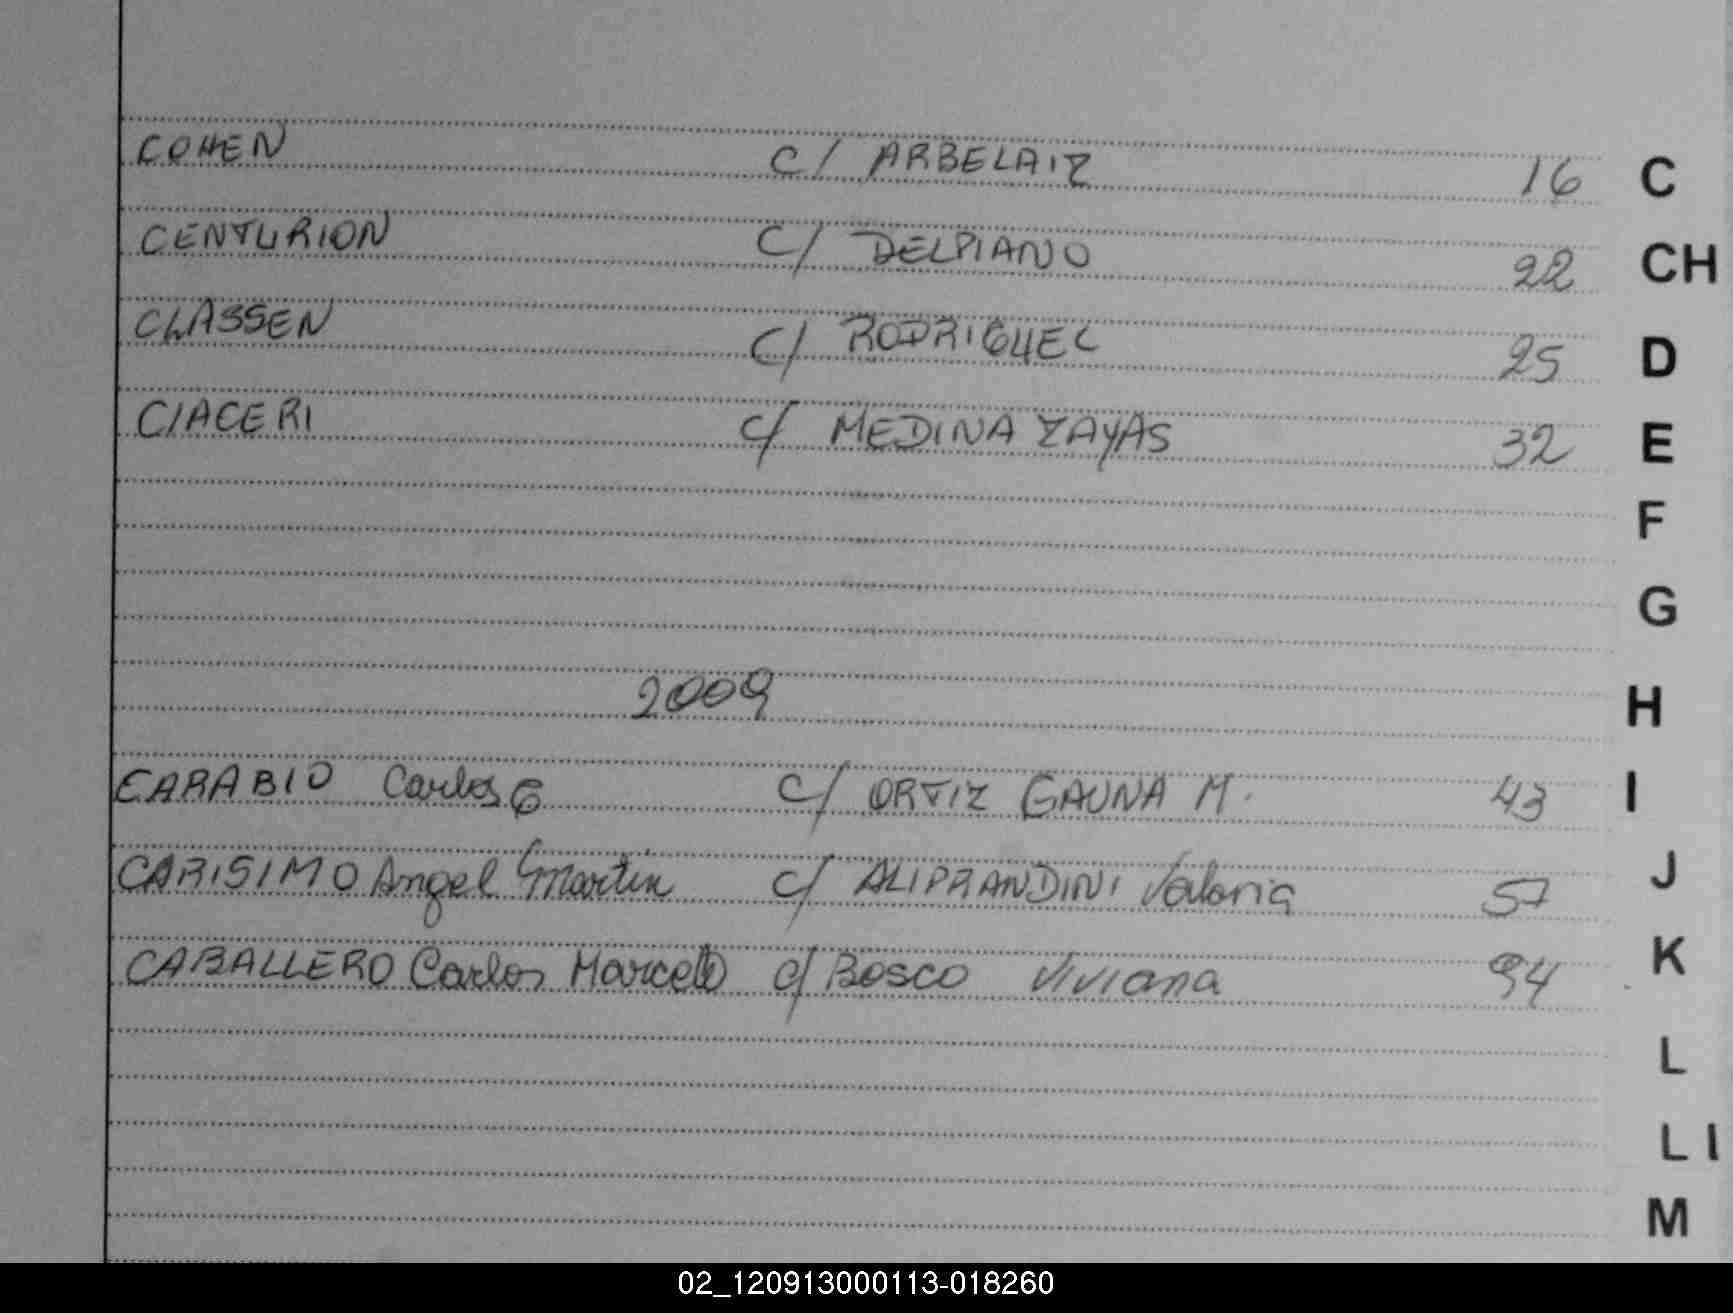 COHEN C/ ARBELAIZ 16 C
CENTURION C/ DELPIANO 22 CH
CLASSEN C/ RODRIGUEZ 25 D
CIACERI C/ MEDINA ZAYAS 32 E
F
G
2009 H
CARABIO Carlos G C/ ORTIZ GAUNA M. 43 I
CARISIMO Angel Martin C/ ALIPRANDINI Valeria 57 J
CABALLERO Carlos Marcelo C/ BOSCO Viviana 94 K
L
LI
M
02_120913000113-018260